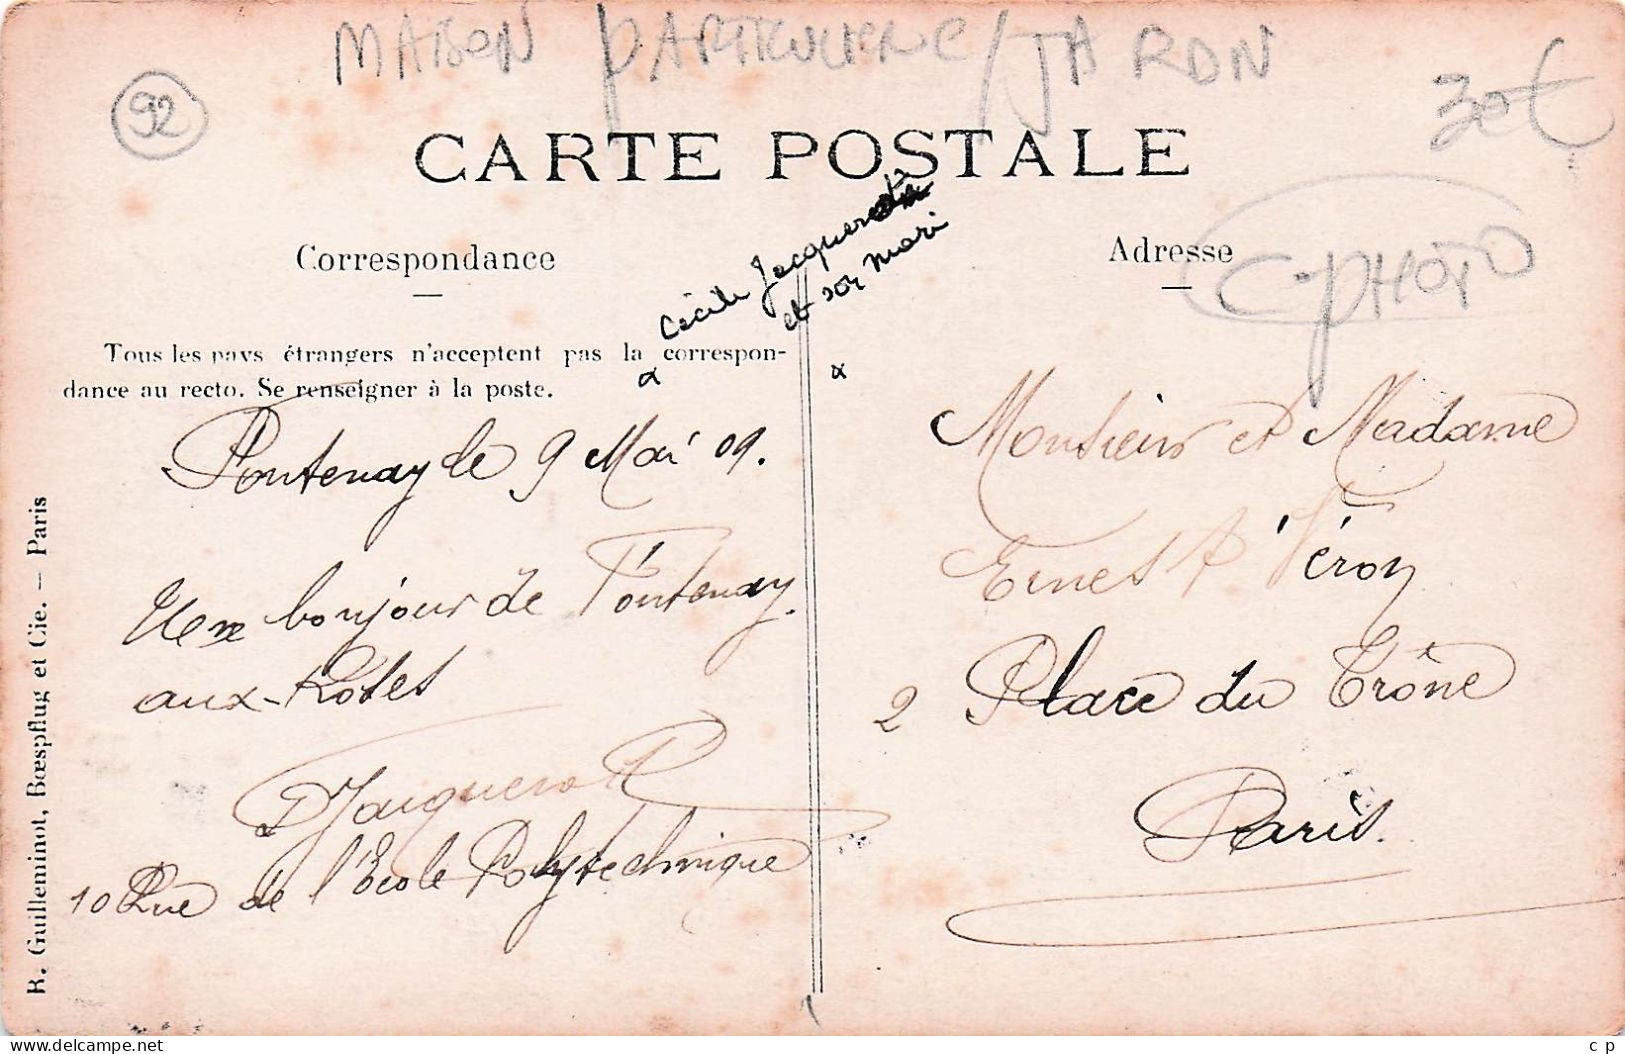 MAISON PARTICULIERE / JARDN
92
30€
CARTE POSTALE
C-PHOTO
Correspondance
Adresse
Cécile Jacquerot
et son mari
Tous les pays étrangers n'acceptent pas la correspon-
dance au recto. Se renseigner à la poste.
Fontenay le 9 Mai 09.
Un bonjour de Fontenay
aux-Roses
Jacquerot
10 Rue de l'École Polytechnique
Monsieur et Madame
Ernest Véron
2 Place du Trône
Paris.
R. Guilleminot, Bœspflug et Cie. — Paris
delcampe.net
c p